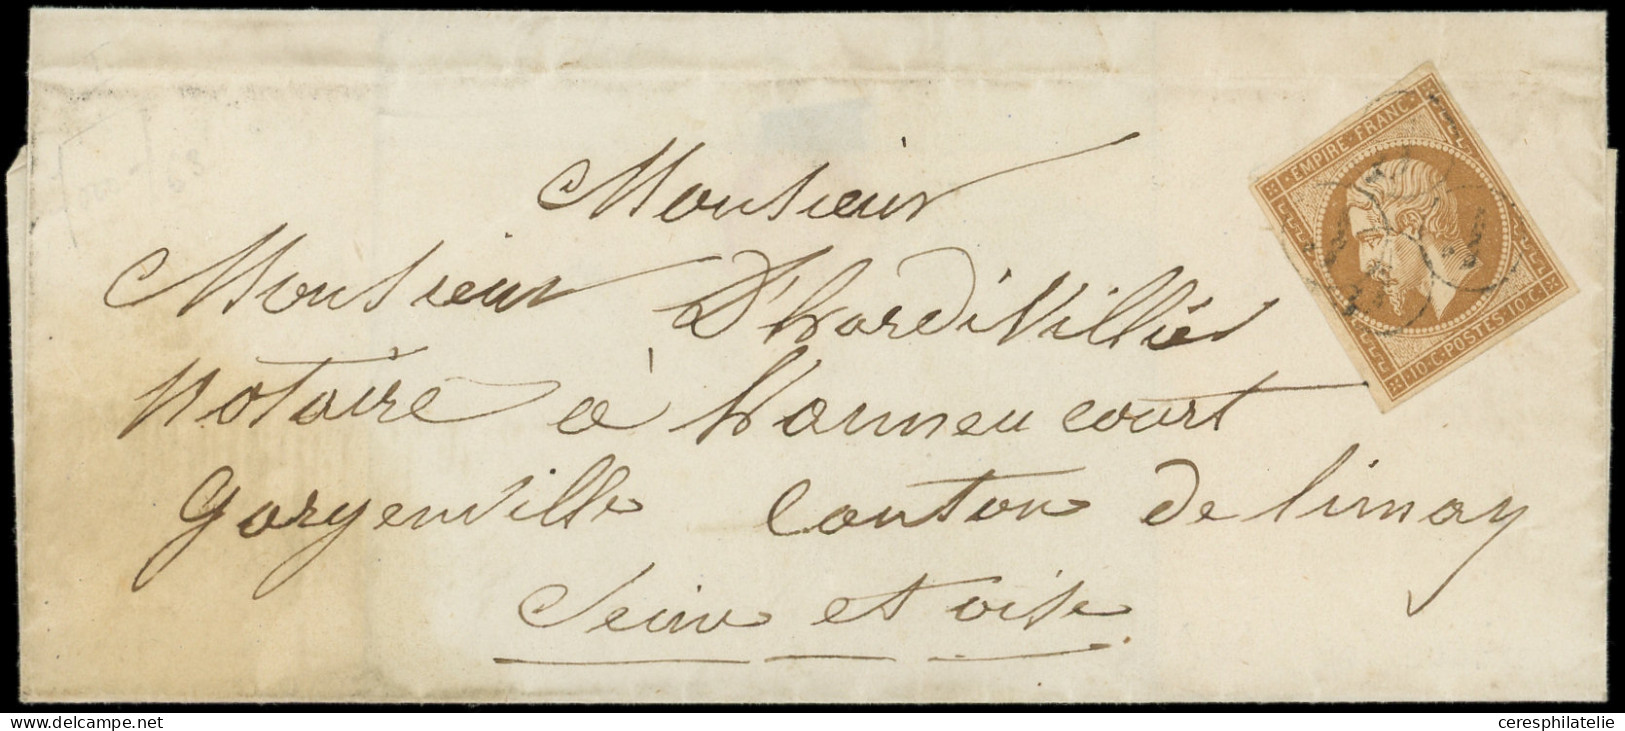 Monsieur
Monsieur D'hardiVillié
notaire à hanneucourt
gargenville Canton de limay
Seine et oise
EMPIRE·FRANC·
·10·C·POSTES·10·C·
www.delcampe.net
ceresphilatelie